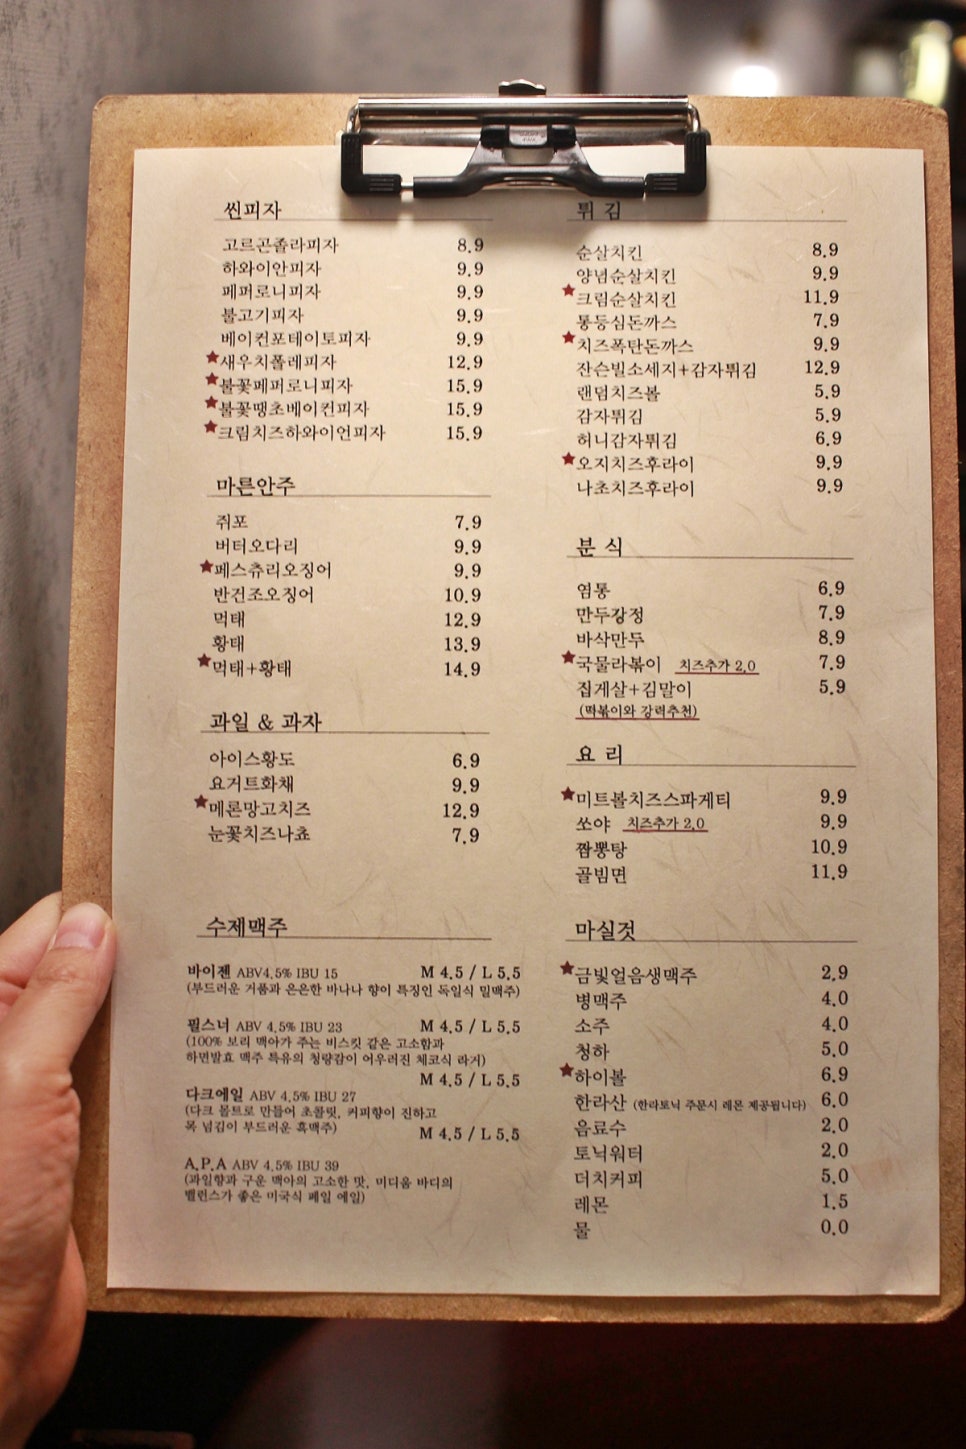 씬피자
고르곤졸라피자 8.9
하와이안피자 9.9
페퍼로니피자 9.9
불고기피자 9.9
베이컨포테이토피자 9.9
★새우치폴레피자 12.9
★불꽃페퍼로니피자 15.9
★불꽃땡초베이컨피자 15.9
★크림치즈하와이언피자 15.9
마른안주
쥐포 7.9
버터오다리 9.9
★페스츄리오징어 9.9
반건조오징어 10.9
먹태 12.9
황태 13.9
★먹태+황태 14.9
과일 & 과자
아이스황도 6.9
요거트화채 9.9
★메론망고치즈 12.9
눈꽃치즈나쵸 7.9
수제맥주
바이젠 ABV4.5% IBU 15 M 4.5 / L 5.5
(부드러운 거품과 은은한 바나나 향이 특징인 독일식 밀맥주)
필스너 ABV 4.5% IBU 23 M 4.5 / L 5.5
(100% 보리 맥아가 주는 비스킷 같은 고소함과
하면발효 맥주 특유의 청량감이 어우러진 체코식 라거)
M 4.5 / L 5.5
다크에일 ABV 4.5% IBU 27
(다크 몰트로 만들어 초콜릿, 커피향이 진하고
목 넘김이 부드러운 흑맥주)
M 4.5 / L 5.5
A.P.A ABV 4.5% IBU 39
(과일향과 구운 맥아의 고소한 맛, 미디움 바디의
밸런스가 좋은 미국식 페일 에일)
튀 김
순살치킨 8.9
양념순살치킨 9.9
★크림순살치킨 11.9
통등심돈까스 7.9
★치즈폭탄돈까스 9.9
잔슨빌소세지+감자튀김 12.9
랜덤치즈볼 5.9
감자튀김 5.9
허니감자튀김 6.9
★오지치즈후라이 9.9
나초치즈후라이 9.9
분 식
염통 6.9
만두강정 7.9
바삭만두 8.9
★국물라볶이 치즈추가 2.0 7.9
집게살+김말이 5.9
(떡볶이와 강력추천)
요 리
★미트볼치즈스파게티 9.9
쏘야 치즈추가 2.0 9.9
짬뽕탕 10.9
골빔면 11.9
마실것
★금빛얼음생맥주 2.9
병맥주 4.0
소주 4.0
청하 5.0
★하이볼 6.9
한라산 (한라토닉 주문시 레몬 제공됩니다) 6.0
음료수 2.0
토닉워터 2.0
더치커피 5.0
레몬 1.5
물 0.0